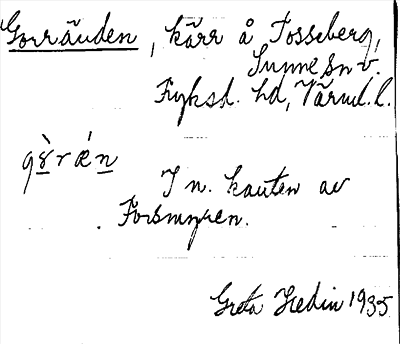 Gorräuden, kärr å Tosseberg,
Sunne sn v.
Fryksd. hd, Värml. l.
I n. kanten av
Forsmyren.
Greta Hedin 1935